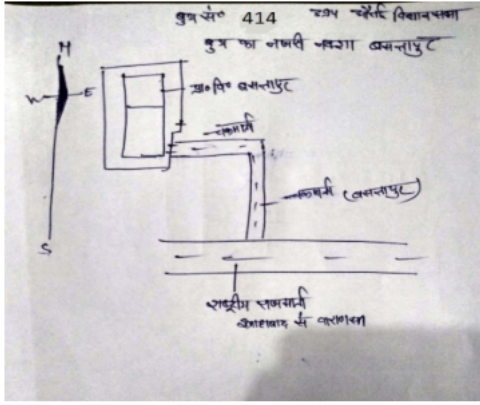 बुथ सं० 414 विधानसभा
बुथ का नजरी नक्शा बसन्तापुर
N
W E
प्रा० वि० बसन्तापुर
चकमार्ग
चकमार्ग (बसन्तापुर)
S
राष्ट्रीय राजमार्ग
इलाहाबाद से वाराणसी